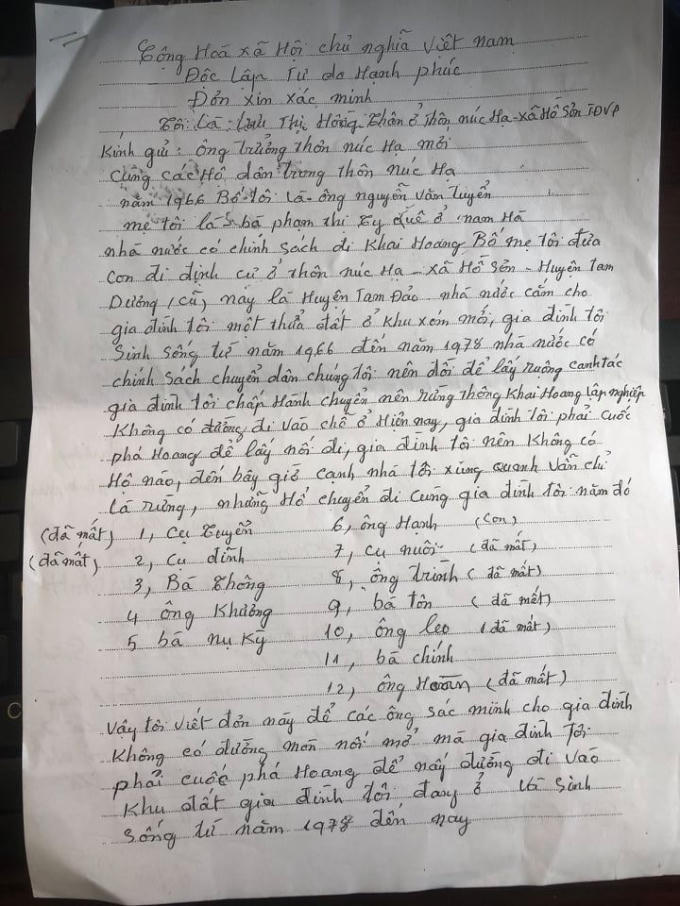 Cộng Hoà xã Hội chủ nghĩa việt nam
Độc Lập Tự do Hạnh phúc
Đơn xin xác minh
Tôi Là Lưu Thị Hồng Thân ở thôn núc Hạ - xã Hồ Sơn TĐVP
Kính gửi: ông trưởng thôn núc Hạ mới
cùng các Hộ dân trong thôn núc Hạ
năm 1966 Bố tôi Là ông nguyễn văn Tuyển
mẹ tôi là bà phạm thị Ty quê ở nam Hà
nhà nước có chính sách đi Khai Hoang Bố mẹ tôi đưa
con đi định cư ở thôn núc Hạ - xã Hồ Sơn - Huyện Tam
Dương (cũ) nay là Huyện Tam Đảo nhà nước cắm cho
gia đình tôi một thửa đất ở khu xóm mới, gia đình tôi
Sinh sống từ năm 1966 đến năm 1978 nhà nước có
chính sách chuyển dân chúng tôi nên đồi để lấy ruộng canh tác
gia đình tôi chấp Hành chuyển nên rừng thông Khai Hoang lập nghiệp
Không có đường đi vào chỗ ở Hiện nay, gia đình tôi phải cuốc
phá Hoang để lấy nối đi, gia đình tôi nên Không có
Hộ nào, đến bây giờ cạnh nhà tôi xung quanh vẫn chỉ
là rừng, những Hộ chuyển đi cùng gia đình tôi năm đó
(đã mất) 1, cụ Tuyển 6, ông Hạnh (con)
(đã mất) 2, cụ đình 7, cụ nuôi (đã mất)
3, Bà Thông 8, ông Trình (đã mất)
4 ông Khương 9, bà tôn (đã mất)
5 bà nụ Kỳ 10, ông leo (đã mất)
11, bà chính
12, ông Hoàn (đã mất)
vậy tôi viết đơn này để các ông sác minh cho gia đình
Không có đường mòn nối mở mà gia đình tôi
phải cuốc phá Hoang để nấy đường đi vào
Khu đất gia đình tôi đang ở và Sinh
Sống từ năm 1978 đến nay